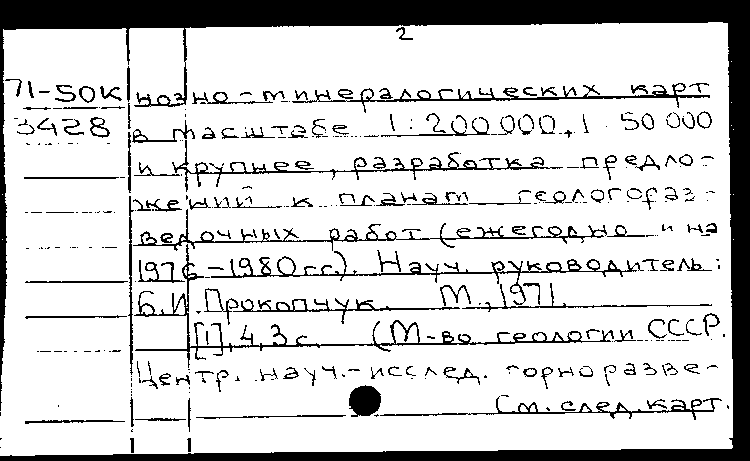 2
71-50К нозно-минералогических карт
3428 в масштабе 1:200 000, 1 50 000
и крупнее, разработка предло-
жений к планам геологораз-
ведочных работ (ежегодно и на
1976-1980гг.). Науч. руководитель:
Б.И.Прокопчук. М., 1971.
[1], 4, 3 с. (М-во геологии СССР.
Центр. науч.-исслед. горноразве-
См. след. карт.